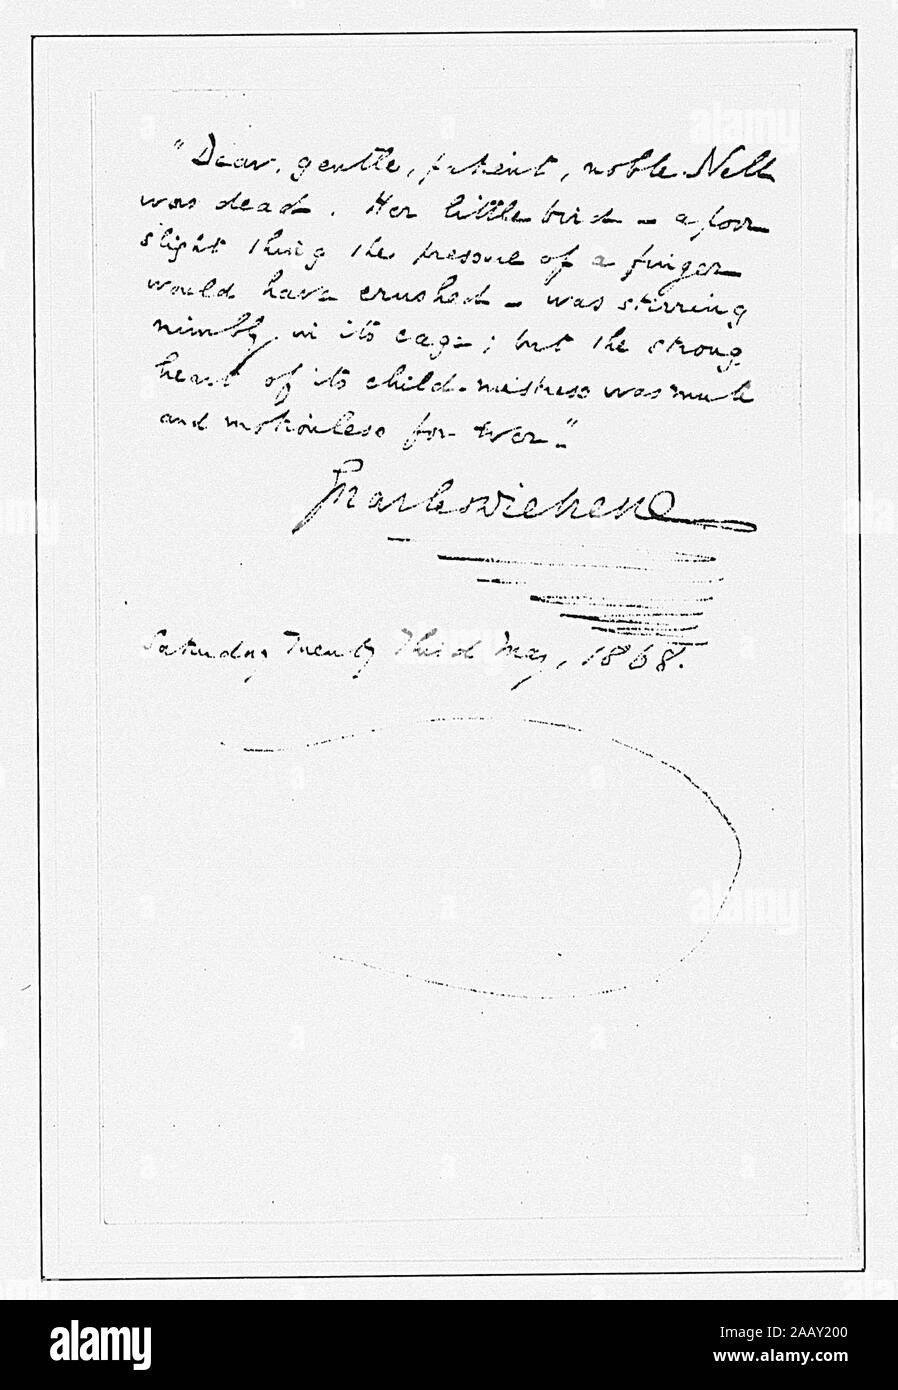 "Dear, gentle, patient, noble Nell
was dead. Her little bird - a poor
slight thing the pressure of a finger
would have crushed - was stirring
nimbly in its cage; but the strong
heart of its child-mistress was mute
and motionless for ever."
Charles Dickens
Saturday Twenty Third May, 1868.
alamy
alamy
alamy
Image ID: 2AAY200
www.alamy.com